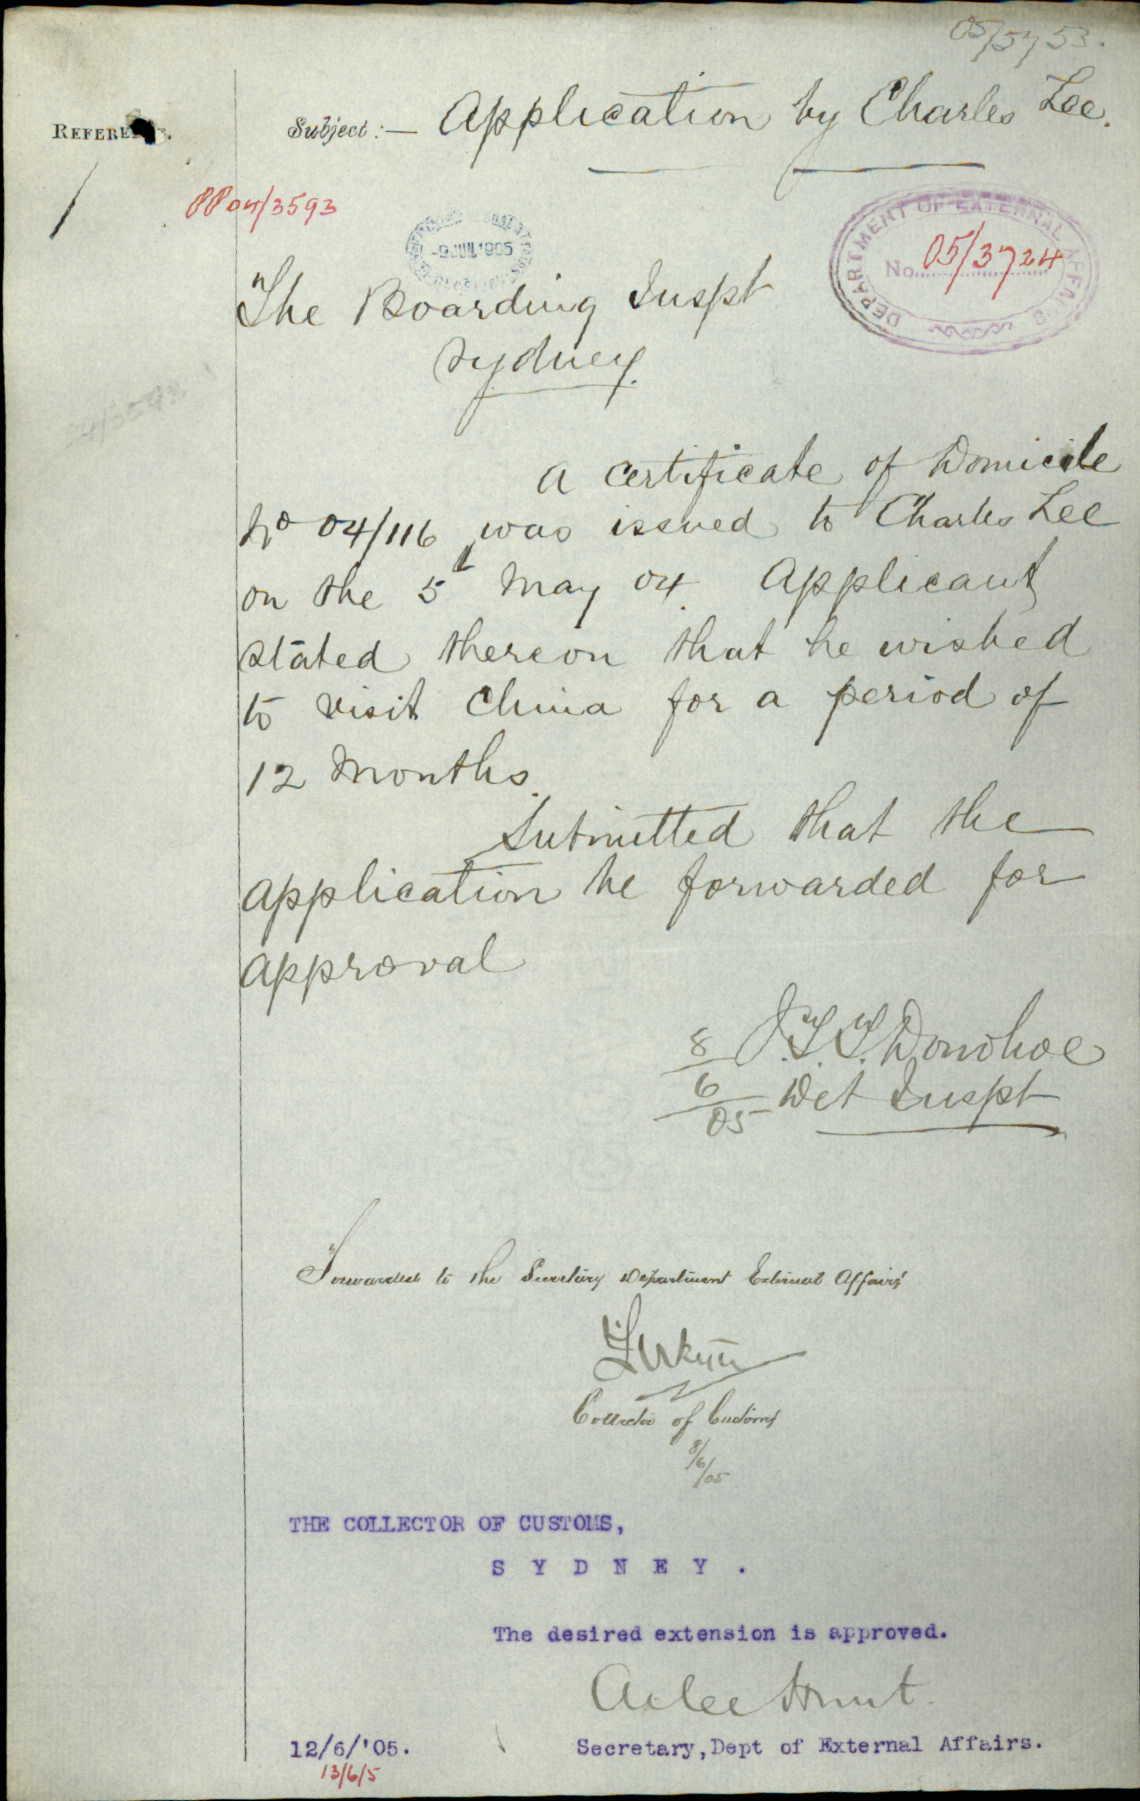 05/5753.
REFERE
Subject:— Application by Charles Lee.
PP 04/3593
-9 JUN 1905
DEPARTMENT OF EXTERNAL AFFAIRS
No. 05/3724
The Boarding Inspt
Sydney.
A Certificate of Domicile
No 04/116 was issued to Charles Lee
on the 5 May 04. Applicant
stated thereon that he wished
to visit China for a period of
12 Months.
Submitted that the
application be forwarded for
approval
8/6/05 J.T.T. Donohoe
Det Inspt
Forwarded to the Secretary Department External Affairs
Collector of Customs
8/6/05
THE COLLECTOR OF CUSTOMS,
S Y D N E Y .
The desired extension is approved.
Atlee Hunt.
12/6/'05. Secretary, Dept of External Affairs.
13/6/5